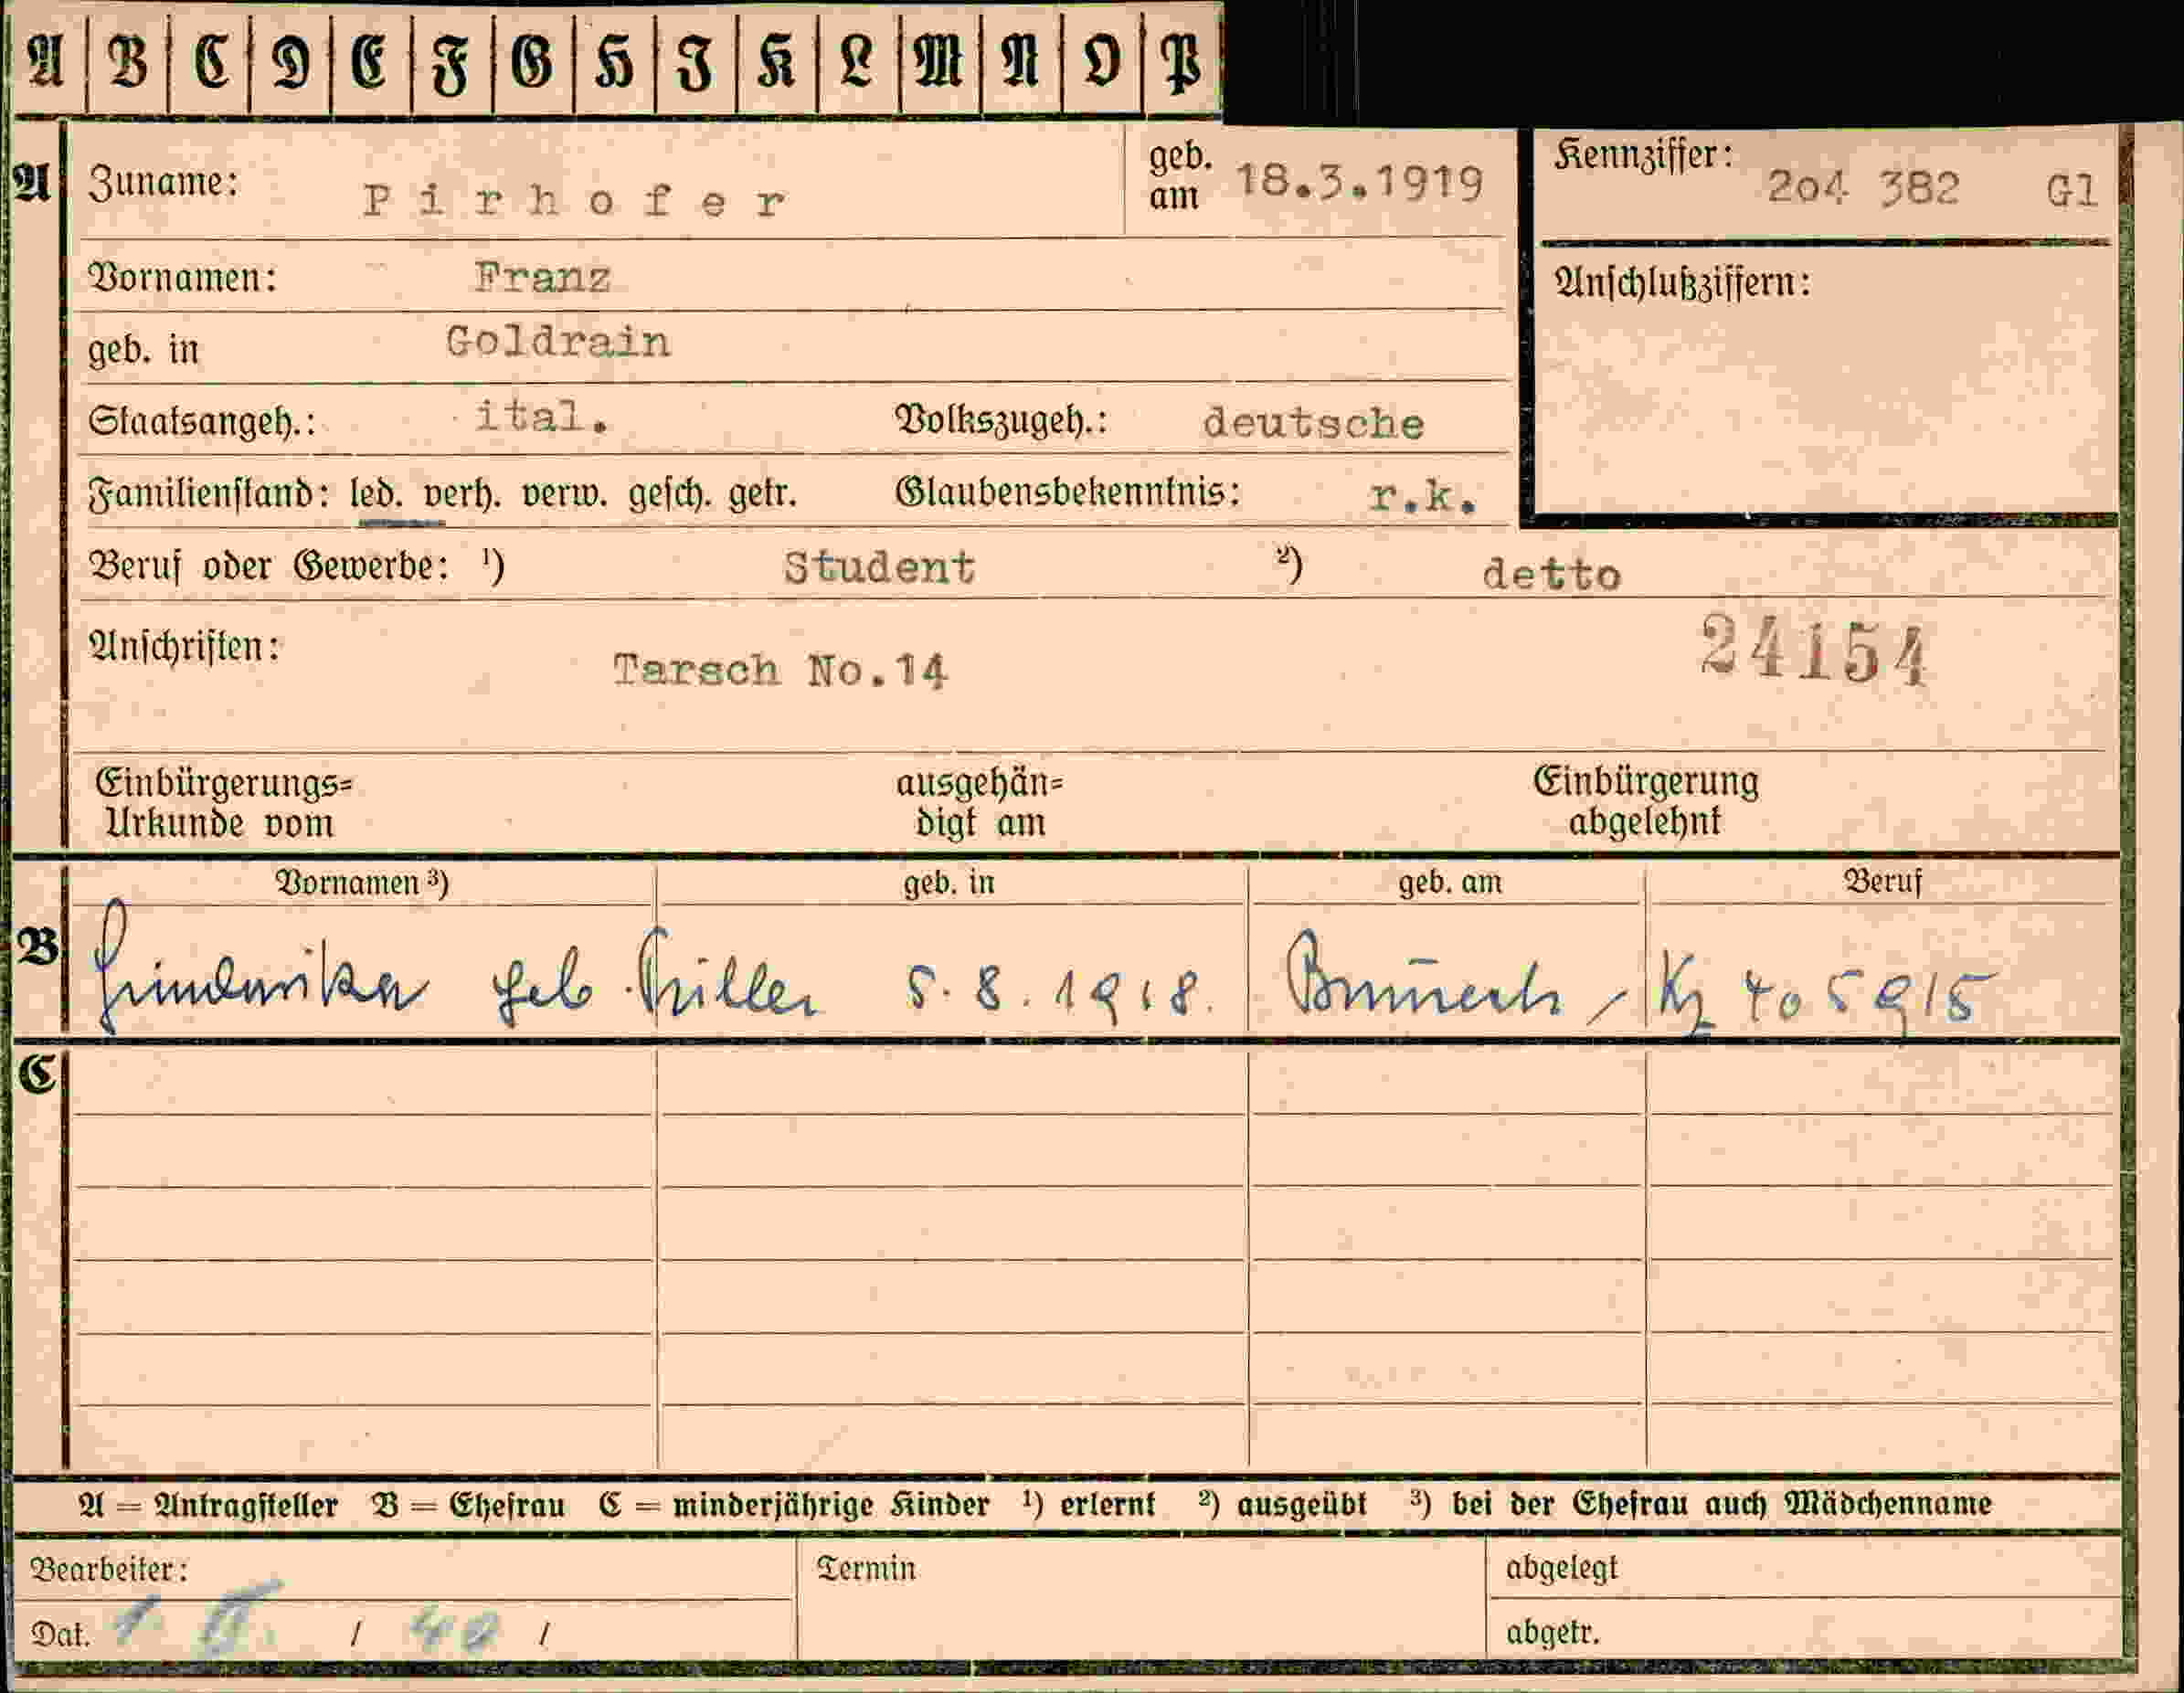 A B C D E F G H J K L M N O P
A Zuname: Pirhofer geb. am 18.3.1919 Kennziffer: 2o4 382 Gl
Vornamen: Franz
Anschlußziffern:
geb. in Goldrain
Staatsangeh.: ital. Volkszugeh.: deutsche
Familienstand: led. verh. verw. gesch. getr. Glaubensbekenntnis: r.k.
Beruf oder Gewerbe: ¹) Student ²) detto
Anschriften: Tarsch No.14 24154
Einbürgerungs= ausgehän= Einbürgerung
Urkunde vom digt am abgelehnt
Vornamen ³) geb. in geb. am Beruf
B geb. 5.8.1918. Kz 405915
C
A = Antragsteller B = Ehefrau C = minderjährige Kinder ¹) erlernt ²) ausgeübt ³) bei der Ehefrau auch Mädchenname
Bearbeiter: Termin abgelegt
Dat. 1 / 40 / abgetr.